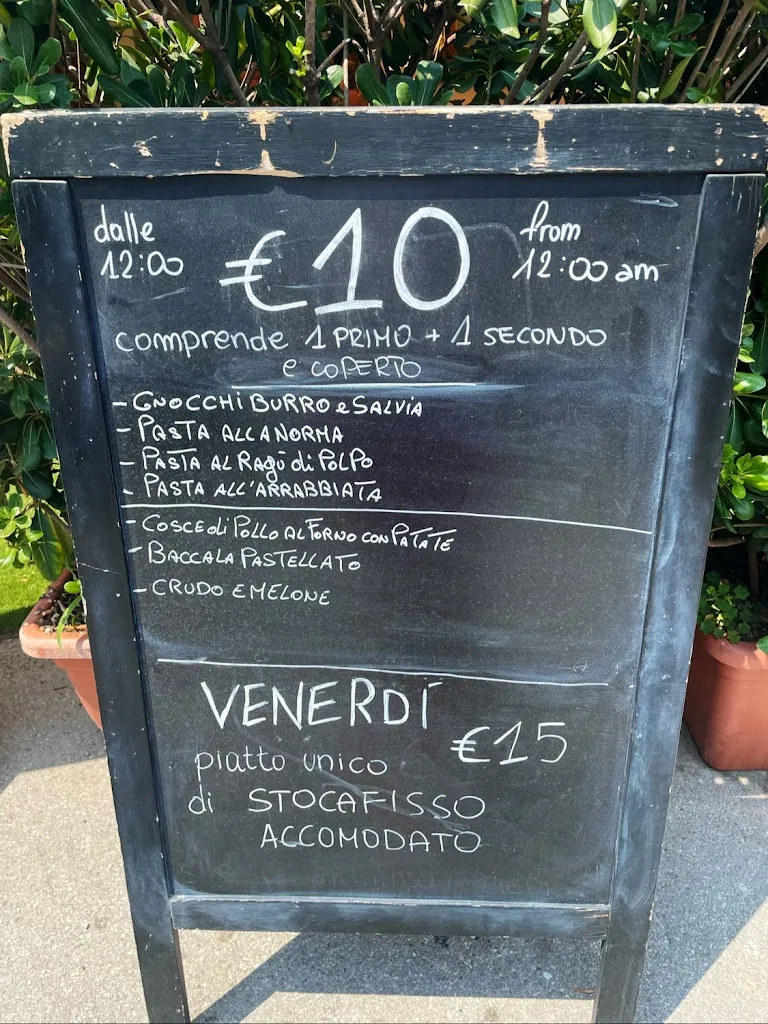 dalle
12:00
€10
from
12:00 am
comprende 1 PRIMO + 1 SECONDO
e COPERTO
- GNOCCHI BURRO e SALVIA
- PASTA ALLA NORMA
- PASTA AL RAGÙ di POLPO
- PASTA ALL'ARRABBIATA
- COSCE di POLLO AL FORNO CON PATATE
- BACCALA PASTELLATO
- CRUDO E MELONE
VENERDÍ
€15
piatto unico
di STOCAFISSO
ACCOMODATO